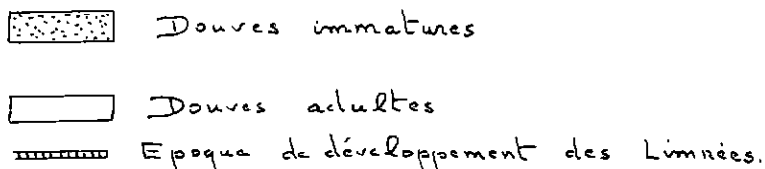 Douves immatures
Douves adultes
Epoque de développement des Limnées.